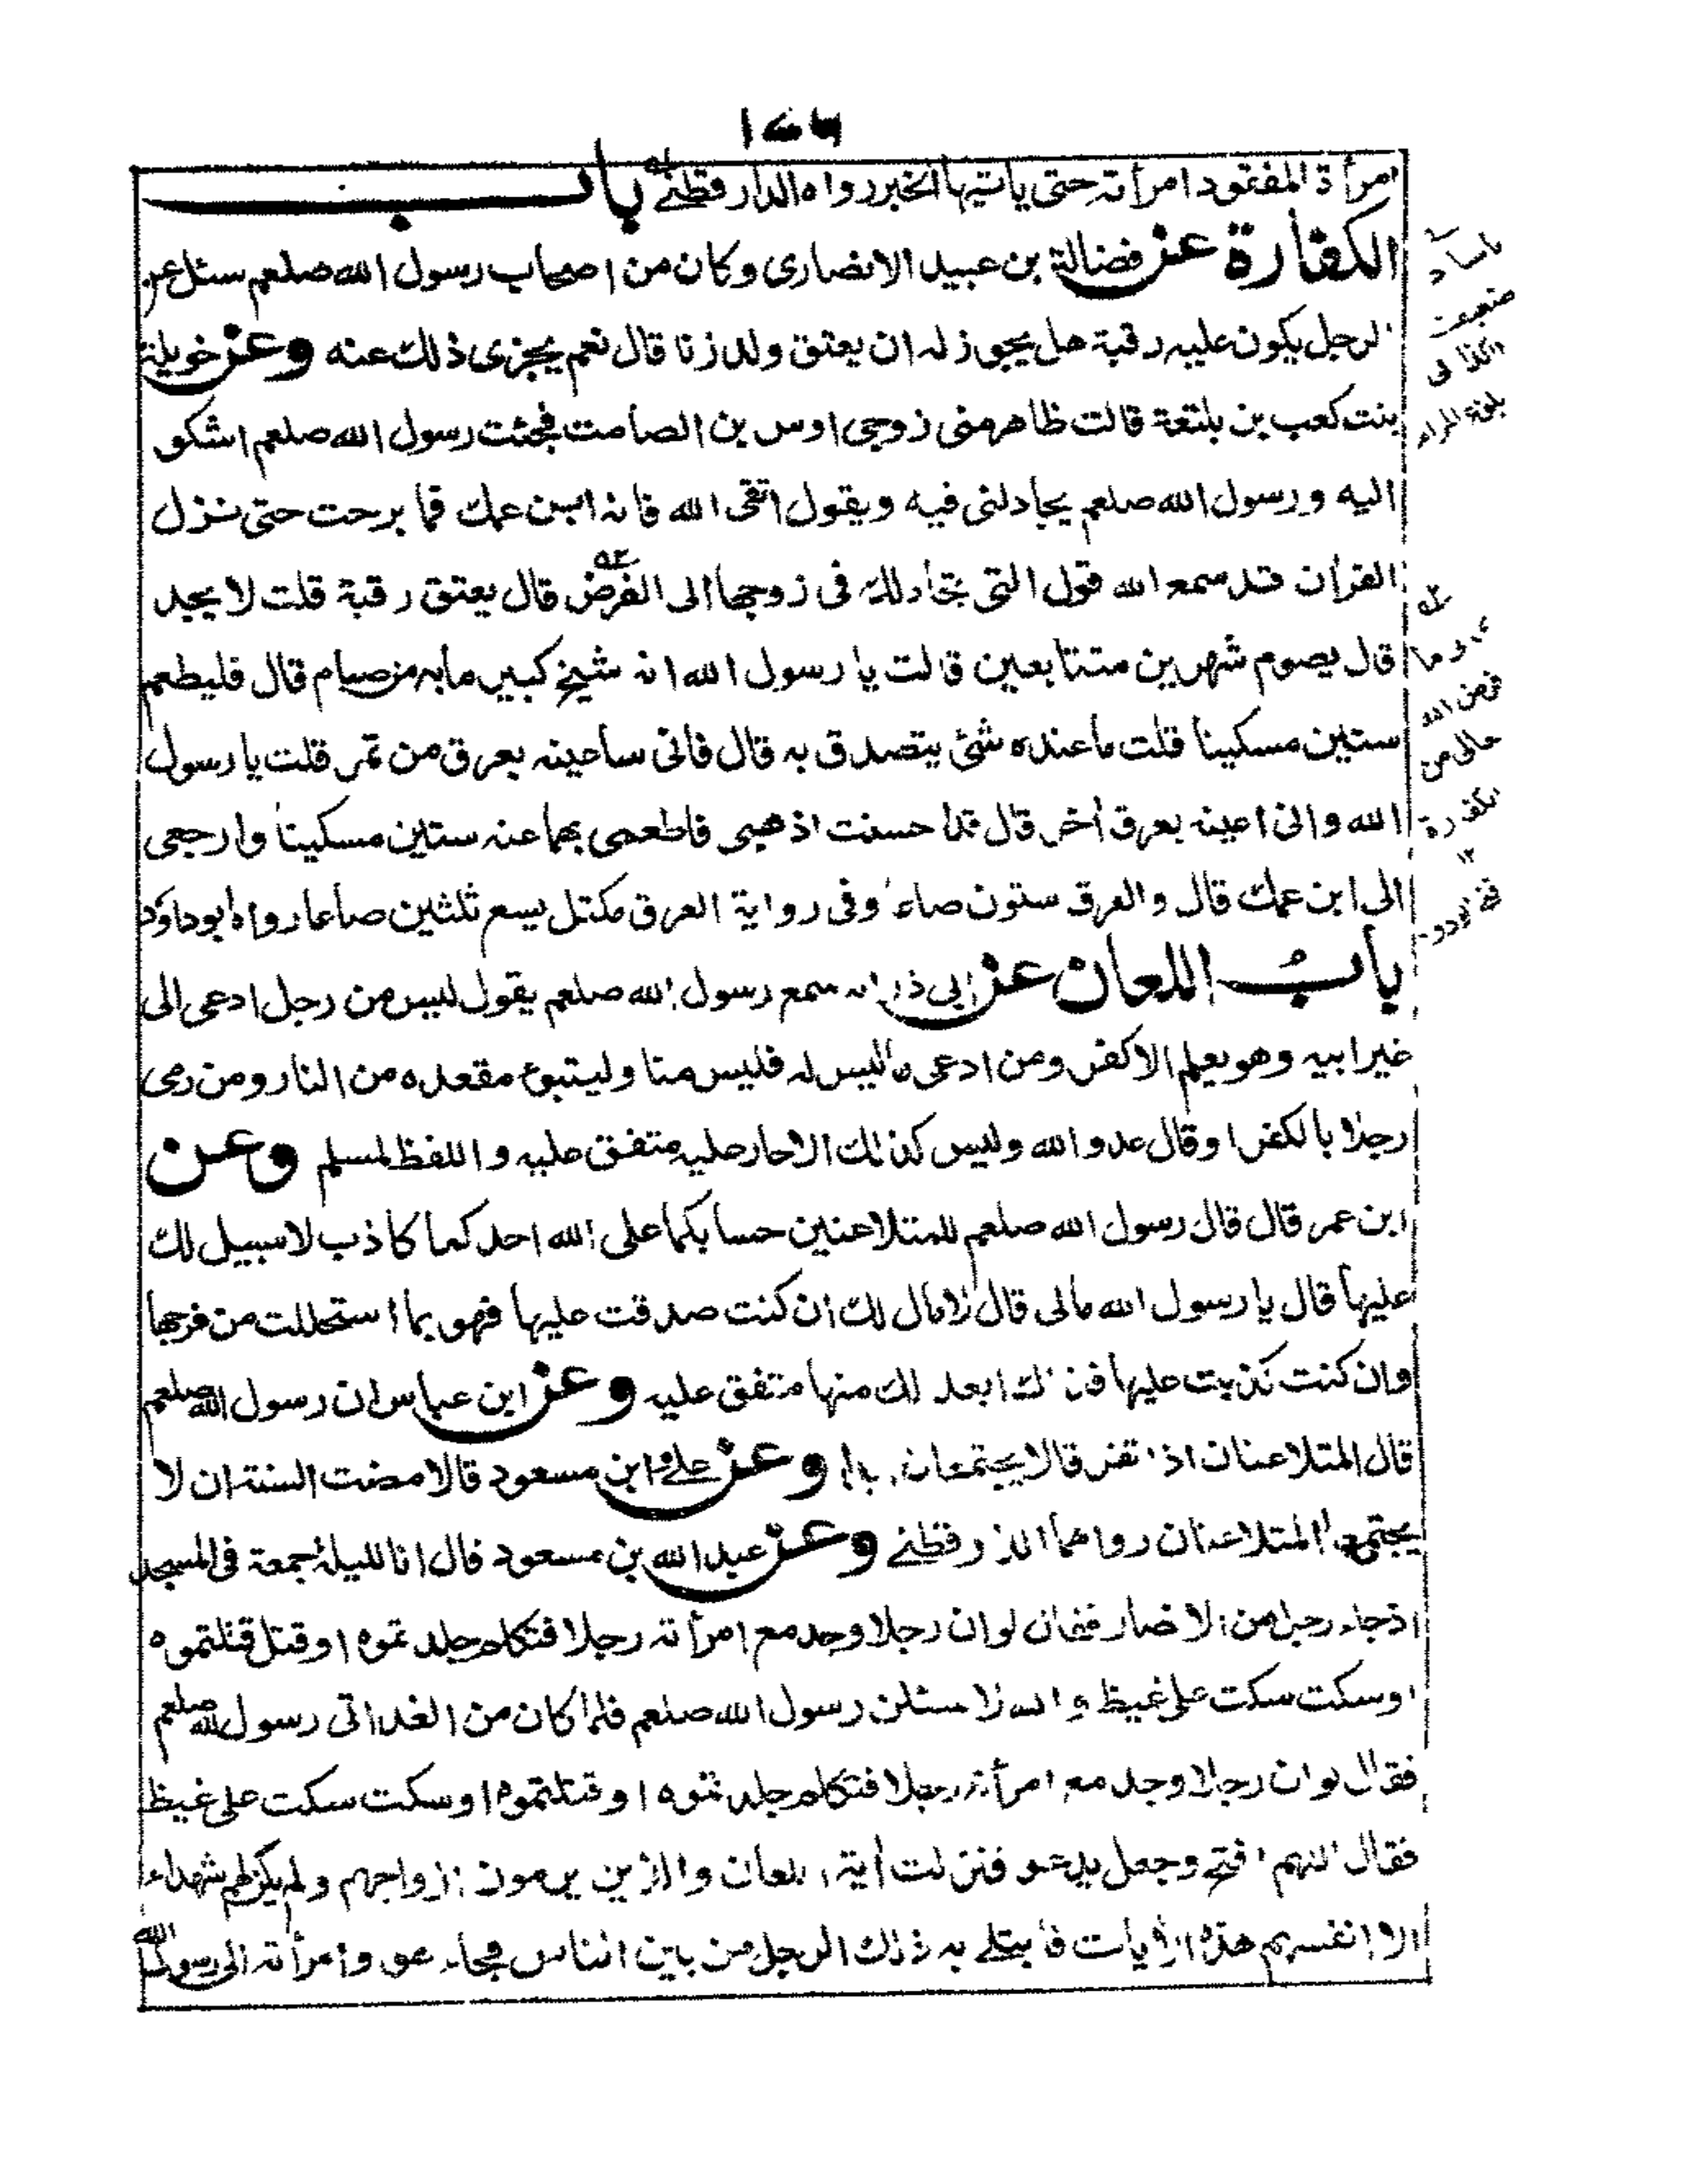 امرأة المفقود امرأته حتى ياتيها الخبر رواه الدارقطنے باب
الكفارة عن فضالة بن عبيد الانصارى وكان من اصحاب رسول الله صلعم سئل عن
الرجل يكون عليه رقبة هل يجوز له ان يعتق ولد زنا قال نعم يجزى ذلك عنه وعن خويلة
بنت كعب بن بلتعة قالت ظاهر منى زوجى اوس بن الصامت فجئت رسول الله صلعم اشكو
اليه ورسول الله صلعم يجادلنى فيه ويقول اتقى الله فانه ابن عمك فما برحت حتى نزل
القران قد سمع الله قول التى تجادلك فى زوجها الى الفرض قال يعتق رقبة قلت لا يجد
قال يصوم شهرين متتابعين قالت يا رسول الله انه شيخ كبير ما به من صيام قال فليطعم
ستين مسكينا قلت ما عنده شئ يتصدق به قال فانى ساعينه بعرق من تمر قلت يا رسول
الله وانى اعينه بعرق أخر قال قد احسنت اذهبى فاطعمى بهما عنه ستين مسكينا وارجعى
الى ابن عمك قال والعرق ستون صاعا وفى رواية العرق مكتل يسع ثلثين صاعا رواه ابوداود
باب اللعان عن ابى ذر انه سمع رسول الله صلعم يقول ليس من رجل ادعى الى
غير ابيه وهو يعلم الا كفر ومن ادعى ما ليس له فليس منا وليتبوء مقعده من النار ومن رمى
رجلا بالكفر او قال عدو الله وليس كذلك الا حار عليه متفق عليه واللفظ لمسلم وعن
ابن عمر قال قال رسول الله صلعم للمتلاعنين حسابكما على الله احدكما كاذب لا سبيل لك
عليها قال يا رسول الله مالى قال لا مال لك ان كنت صدقت عليها فهو بما استحللت من فرجها
وان كنت كذبت عليها فذلك ابعد لك منها متفق عليه وعن ابن عباس ان رسول الله صلعم
قال المتلاعنان اذا تفرقا لا يجتمعان ابدا وعن علے وابن مسعود قالا مضت السنة ان لا
يجتمع المتلاعنان رواهما الدارقطنے وعن عبد الله بن مسعود قال انا لليلة جمعة فى المسجد
اذ جاء رجل من الانصار فقال لو ان رجلا وجد مع امرأته رجلا فتكلم جلدتموه او قتل قتلتموه
او سكت سكت على غيظ والله لاسئلن رسول الله صلعم فلما كان من الغد اتى رسول الله صلعم
فقال لو ان رجلا وجد مع امرأته رجلا فتكلم جلدتموه او قتلتموه او سكت سكت على غيظ
فقال اللهم افتح وجعل يدعو فنزلت أية اللعان والذين يرمون ازواجهم ولم يكن لهم شهداء
الا انفسهم هذه الأيات فابتلے به ذلك الرجل من بين الناس فجاء هو وامرأته الى رسول الله